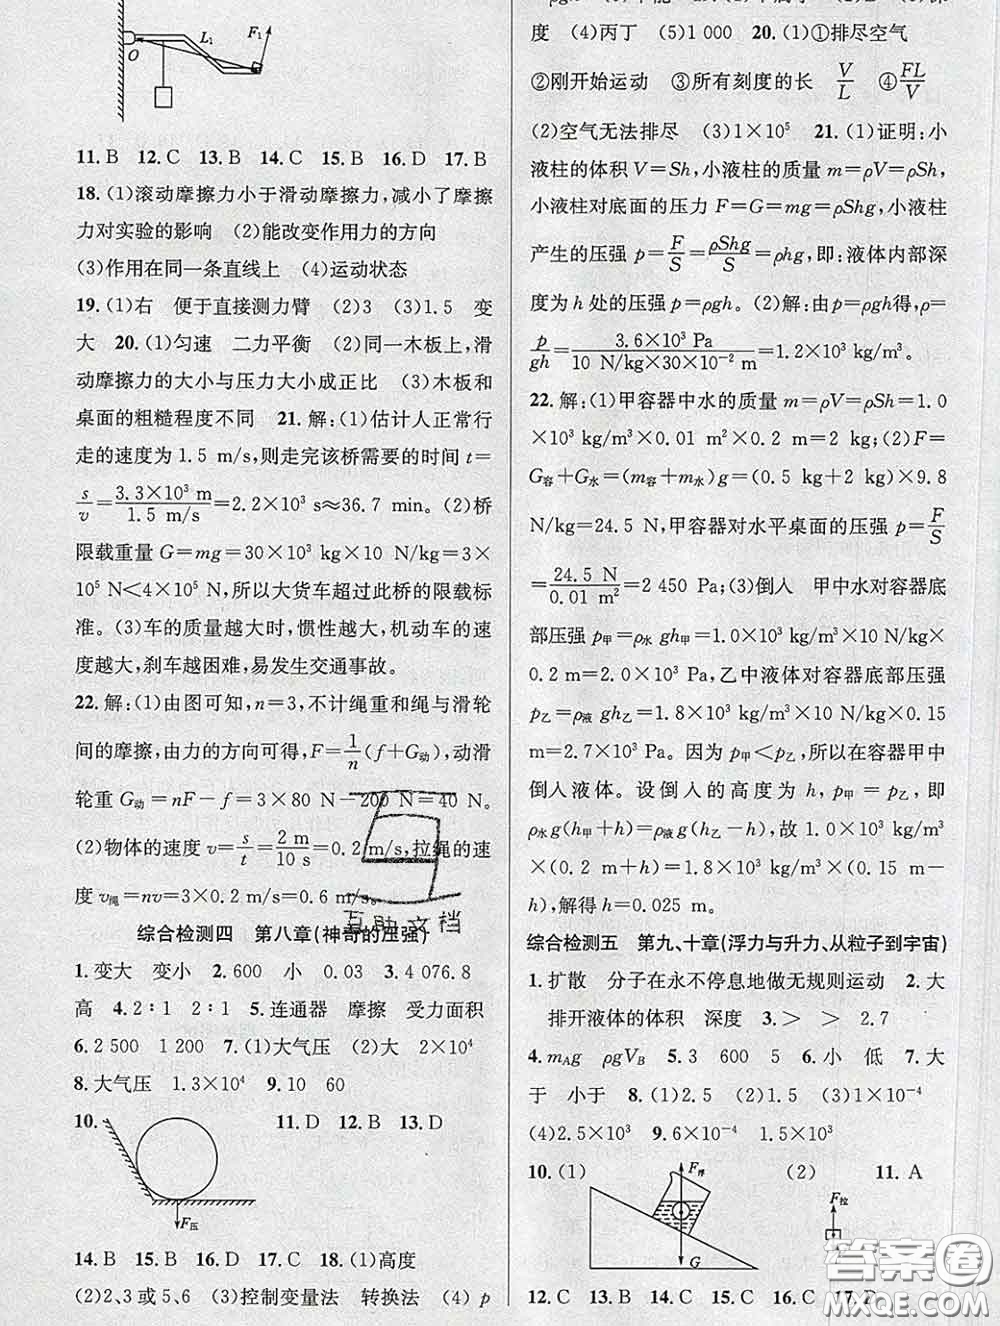 L₁
F₁
O
11. B 12. C 13. B 14. C 15. B 16. D 17. B
18. (1)滚动摩擦力小于滑动摩擦力,减小了摩擦
力对实验的影响 (2)能改变作用力的方向
(3)作用在同一条直线上 (4)运动状态
19. (1)右 便于直接测力臂 (2)3 (3)1.5 变
大 20. (1)匀速 二力平衡 (2)同一木板上,滑
动摩擦力的大小与压力大小成正比 (3)木板和
桌面的粗糙程度不同 21. 解:(1)估计人正常行
走的速度为 1.5 m/s,则走完该桥需要的时间 t=
s/v=3.3×10³ m/1.5 m/s=2.2×10³ s≈36.7 min. (2)桥
限载重量 G=mg=30×10³ kg×10 N/kg=3×
10⁵ N<4×10⁵ N,所以大货车超过此桥的限载标
准。(3)车的质量越大时,惯性越大,机动车的速
度越大,刹车越困难,易发生交通事故。
22. 解:(1)由图可知,n=3,不计绳重和绳与滑轮
间的摩擦,由力的方向可得,F=1/n(f+G动),动滑
轮重 G动=nF-f=3×80 N-200 N=40 N。
(2)物体的速度 v=s/t=2 m/10 s=0.2 m/s,拉绳的速
度 v绳=nv=3×0.2 m/s=0.6 m/s。
互助文档
综合检测四 第八章(神奇的压强)
1. 变大 变小 2. 600 小 0.03 3. 4 076.8
高 4. 2∶1 2∶1 5. 连通器 摩擦 受力面积
6. 2 500 1 200 7. (1)大气压 (2)大 2×10⁴
8. 大气压 1.3×10⁴ 9. 10 60
10. 11. D 12. B 13. D
F压
14. B 15. B 16. D 17. C 18. (1)高度
(2)2、3 或 5、6 (3)控制变量法 转换法 (4) p
度 (4)丙丁 (5)1 000 20. (1)①排尽空气
②刚开始运动 ③所有刻度的长 V/L ④FL/V
(2)空气无法排尽 (3)1×10⁵ 21. (1)证明:小
液柱的体积 V=Sh,小液柱的质量 m=ρV=ρSh,
小液柱对底面的压力 F=G=mg=ρShg,小液柱
产生的压强 p=F/S=ρShg/S=ρhg,即:液体内部深
度为 h 处的压强 p=ρgh。(2)解:由 p=ρgh得,ρ=
p/gh=3.6×10³ Pa/10 N/kg×30×10⁻² m=1.2×10³ kg/m³。
22. 解:(1)甲容器中水的质量 m=ρV=ρSh=1.0
×10³ kg/m³×0.01 m²×0.2 m=2 kg;(2)F=
G容+G水=(m容+m水)g=(0.5 kg+2 kg)×9.8
N/kg=24.5 N,甲容器对水平桌面的压强 p=F/S
=24.5 N/0.01 m²=2 450 Pa;(3)倒入 甲中水对容器底
部压强 p甲=ρ水gh甲=1.0×10³ kg/m³×10 N/kg
×0.2 m=2.0×10³ Pa,乙中液体对容器底部压强
p乙=ρ液gh乙=1.8×10³ kg/m³×10 N/kg×0.15
m=2.7×10³ Pa。因为 p甲<p乙,所以在容器甲中
倒入液体。设倒入的高度为 h,p甲=p乙,即
ρ水g(h甲+h)=ρ液g(h乙-h),故 1.0×10³ kg/m³
×(0.2 m+h)=1.8×10³ kg/m³×(0.15 m-
h),解得 h=0.025 m。
综合检测五 第九、十章(浮力与升力、从粒子到宇宙)
1. 扩散 分子在永不停息地做无规则运动 2. 大
排开液体的体积 深度 3. > > 2.7
4. mAg ρgVB 5. 3 600 5 6. 小 低 7. 大
于 小于 8. (1)2.5 (2)1 (3)1×10⁻⁴
(4)2.5×10³ 9. 6×10⁻⁴ 1.5×10³
10. (1) (2) 11. A
F浮
F拉
G
12. C 13. B 14. B 15. C 16. C 17. D
答案圈
MXQE.COM